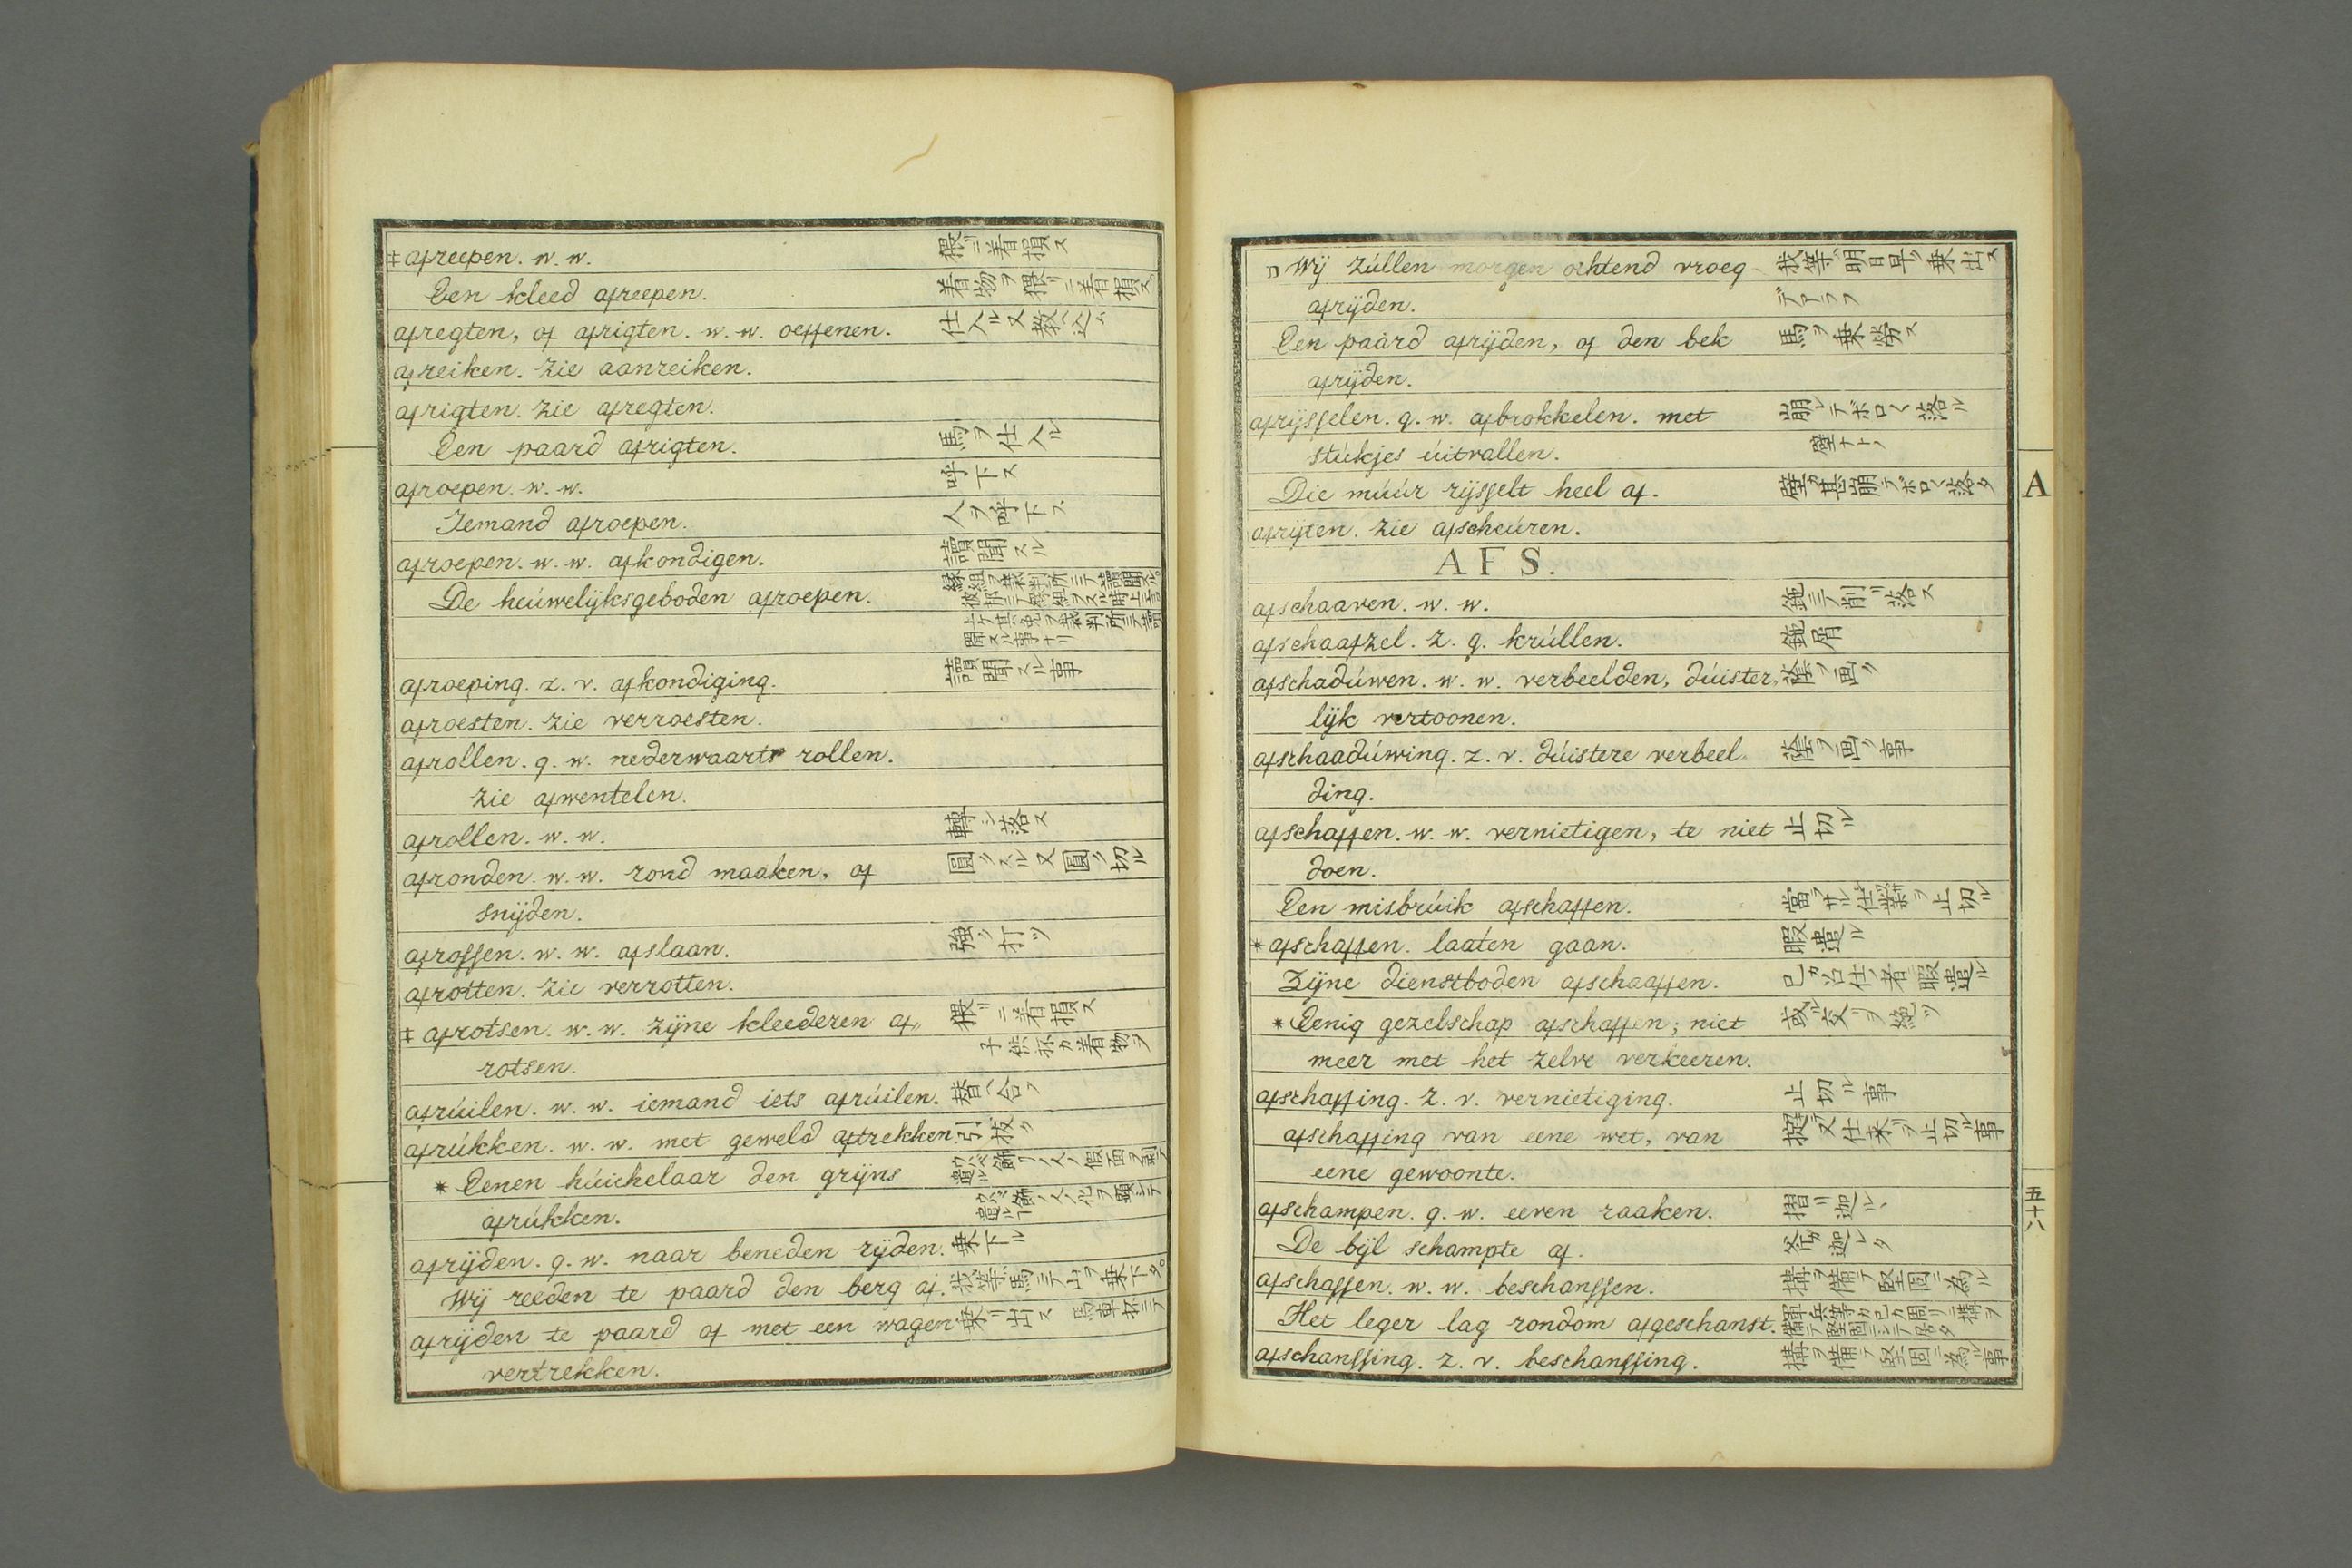 ‡ afreepen. w. w. 猥リニ着損ス
Een kleed afreepen. 着物ヲ猥リニ着損ス
afregten, of afrigten. w. w. oeffenen. 仕入ル又教ヘ込ム
afreiken. zie aanreiken.
afrigten. zie afregten.
Een paard afrigten. 馬ヲ仕入ル
afroepen. w. w. 呼下ス
Iemand afroepen. 人ヲ呼下ス
afroepen. w. w. afkondigen. 讀聞スル
De heúwelijksgeboden afroepen. 縁組ヲ裁判所ニテ讀聞スル
聞スル事ナリ
afroeping. z. v. afkondiging. 讀聞スル事
afroesten. zie verroesten.
afrollen. g. w. nederwaarts rollen.
zie afwentelen.
afrollen. w. w. 轉シ落ス
afronden. w. w. rond maaken, af 圓クスル又圓ク切ル
snijden.
afrossen. w. w. afslaan. 強ク打ツ
afrotten. zie verrotten.
‡ afrotsen. w. w. zijne kleederen af„ 猥リニ着損ス
rotsen. 子供抔カ着物ヲ
afrúilen. w. w. iemand iets afrúilen. 替ヘ合フ
afrúkken. w. w. met geweld aftrekken. 引抜ク
* Eenen húichelaar den grijns 飾リノ人ノ假面ヲ剥
afrúkken.
afrijden. g. w. naar beneden rijden. 乗下ル
Wij reeden te paard den berg af. 我等馬ニテ山ヲ乗下タ
afrijden te paard of met een wagen 乗リ出ス 馬車抔ニテ
vertrekken.
Wij zúllen morgen ochtend vroeg 我等明日早ク乗出ス
afrijden. デアラフ
Een paard afrijden, of den bek 馬ヲ乗労ス
afrijden.
afrijsselen. g. w. afbrokkelen. met 崩レテボロ〱落ル
stúkjes úitvallen. 壁ナトノ
Die múúr rijsselt heel af. 壁甚崩テボロ〱落タ
afrijten. zie afscheúren.
A F S.
afschaaven. w. w. 鉋ニテ削リ落ス
afschaafzel. z. g. krúllen. 鉋屑
afschadúwen. w. w. verbeelden, dúister, 蔭ヲ画ク
lijk vertoonen.
afschaadúwing. z. v. dúistere verbeel 蔭ヲ画ク事
ding.
afschaffen. w. w. vernietigen, te niet 止切ル
doen.
Een misbrúik afschaffen. 當ラサル仕業ヲ止切ル
* afschaffen. laaten gaan. 暇遣ル
Zijne dienstboden afschaaffen. 己カ召仕ノ者ニ暇遣ル
* Eenig gezelschap afschaffen; niet 或ル交リヲ絶ツ
meer met het zelve verkeeren.
afschaffing. z. v. vernietiging. 止切ル事
afschaffing van eene wet, van 掟又仕来リヲ止切ル事
eene gewoonte.
afschampen. g. w. eeven raaken. 摺リ迦ル
De bijl schampte af. 斧カ迦レタ
afschassen. w. w. beschanssen. 構ヲ備テ堅固ニ為ル
Het leger lag rondom afgeschanst. 軍兵等カ己カ周リニ構ヲ備テ堅固ニシテ居タ
afschanssing. z. v. beschanssing. 構ヲ備テ堅固ニ為ル事
A
五十八